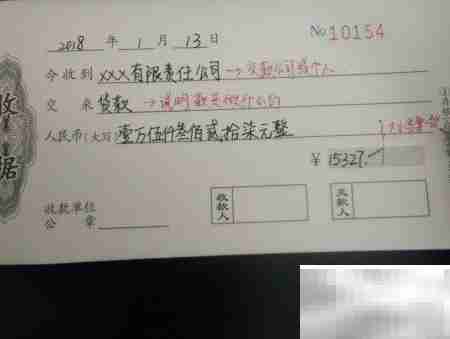 2018 年 1 月 13 日 No 10154
今收到 XXX有限责任公司 →交款公司或个人
交来 货款 →说明款是做什么的
人民币(大写) 壹万伍仟叁佰贰拾柒元整
¥ 15327.-
收款单位
公章
收款人
交款人
收据